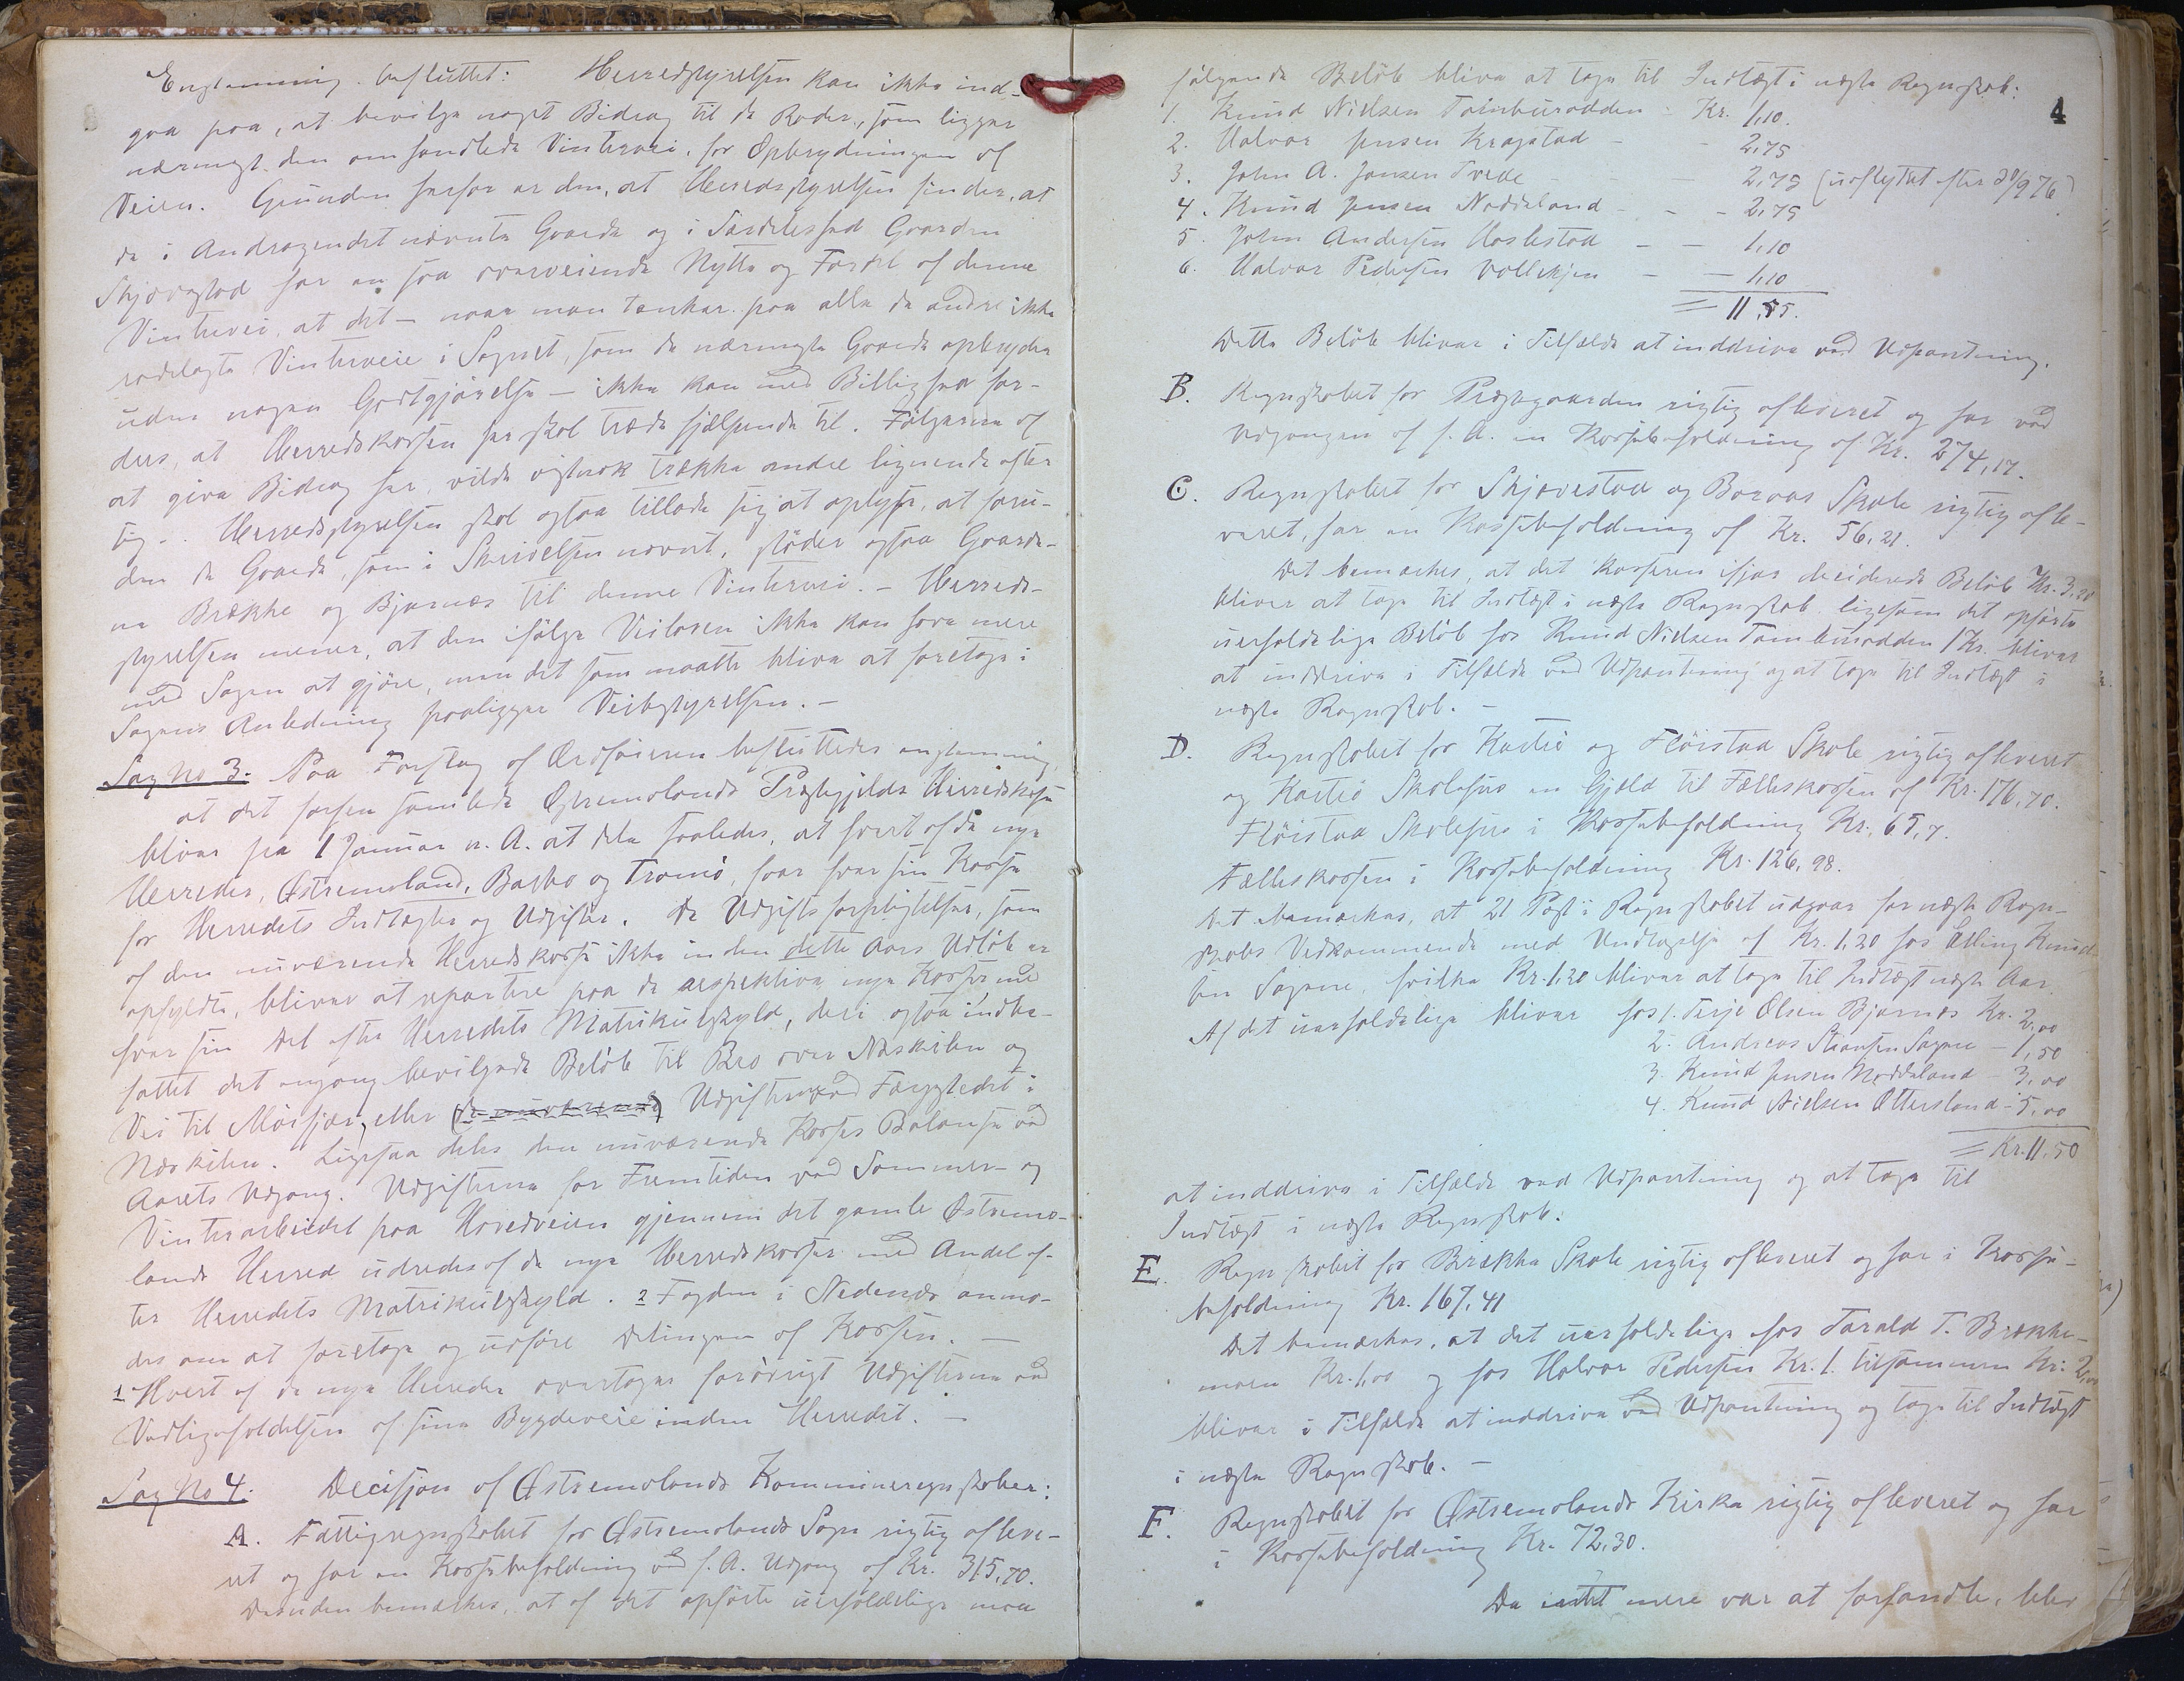 Enstemmig besluttet: Herredstyrelsen kan ikke ind-
gaa paa, at bevilge noget Bidrag til de Roder, som ligger
nærmest den omhandlede Vintervei, for Opbrydningen af
Veien. Grunden herfor er den, at Herredsstyrelsen finder, at
de i Andragendet nævnte Gaarde og i Særdeleshed Gaarden
Skjævestad har en saa overveiende Nytte og Fordel af denne
Vintervei, at det – naar man tænker paa alle de andre ikke
rodelagte Vinterveie i Sognet, som de nærmeste Gaarde opbryder
uden nogen Godtgjørelse – ikke kan med Billighed for-
dres, at Herredskassen her skal træde hjælpende til. Følgerne af
at give Bidrag her, vilde vistnok trække andre lignende efter
sig. – Herredsstyrelsen skal ogsaa tillade sig at oplyse, at foru-
den de Gaarde, som i Skrivelsen nævnt, støder ogsaa Gaarde-
ne Brække og Bjørnæs til denne Vintervei. – Herreds-
styrelsen mener, at den ifølge Veiloven ikke kan have mere
med Sagen at gjøre, men det som maatte blive at foretage i
Sagens Anledning paaligger Veibestyrelsen. –
Sag No 3. Paa Forslag af Ordføreren besluttedes enstemmig,
at det forhen samlede Østremolands Præstegjelds Herredskasse
bliver fra 1 Januar n. A. at dele saaledes, at hvert af de nye
Herreder, Østremoland, Barbo og Tromø, faar hver sin Kasse
for Herredets Indtægter og Udgifter. De Udgiftsforpligtelser, som
af den nuværende Herredskasse ikke inden dette Aars Udløb er
opfyldte, bliver at repartere paa de respektive nye Kasser med
hver sin Del efter Herredets Matrikulskyld, deri ogsaa indbe-
fattet det engang bevilgede Beløb til Bro over Næskilen og
Vei til Moisjær, eller Udgifterne ved Færgestedet i
Næskilen. Ligesaa deles den nuværende Kasses Balanse ved
Aarets Udgang. Udgifterne for Fremtiden ved Sommer- og
Vinterarbeidet paa Hovedveien gjennem det gamle Østremo-
lands Herred udredes af de nye Herredskasser med Andel ef-
ter Herredets Matrikulskyld. 2 Fogden i Nedenæs anmo-
des om at foretage og udføre Delingen af Kassen. –
1 Hvert af de nye Herreder overtager forøvrigt Udgifterne ved
Vedligeholdelsen af sine Bygdeveie inden Herredet. –
Sag No 4. Decisjon af Østremolands Kommuneregnskaber:
A. Fattigregnskabet for Østremolands Sogn rigtig afleve-
ret og har en Kassebeholdning ved f. A. Udgang af Kr. 315,70.
Desuden bemærkes, at af det opførte uerholdelige maa
4
følgende Beløb blive at tage til Indtægt i næste Regnskab:
1. Knud Nielsen Tambursodden – Kr. 1,10.
2. Halvor Jensen Kragstad – – 2,75
3. John A. Jensen Tvede – – 2,75 (udflyttet efter 30/9 76)
4. Knud Jensen Noddeland – – 2,75
5. John Andersen Haslestad – – 1,10
6. Halvor Pedersen Vollekjen – – 1,10
= 11,55.
Dette Beløb bliver i Tilfælde at inddrive ved Udpantning.
B. Regnskabet for Præstegaarden rigtig afleveret og har ved
Udgangen af f. A. en Kassebeholdning af Kr. 274,17.
C. Regnskabet for Skjævestad og Boraas Skole rigtig afle-
veret, har en Kassebeholdning af Kr. 56,21.
Det bemærkes, at det Kasseren ifjor deciderede Beløb Kr. 3,20
bliver at tage til Indtægt i næste Regnskab ligesom det opførte
uerholdelige Beløb hos Knud Nielsen Tambursodden 1 Kr. bliver
at inddrive i Tilfælde ved Udpantning og at tage til Indtægt i
næste Regnskab. –
D. Regnskabet for Kastiø og Fløistad Skole rigtig afleveret
og Kastiø Skolehus en Gjæld til Fælleskassen af Kr. 176,70.
Fløistad Skolehus i Kassebeholdning Kr. 65,7.
Fælleskassen i Kassebeholdning Kr. 126,98.
Det bemærkes, at 21 Post i Regnskabet udgaar for næste Regn-
skabs Vedkommende med Undtagelse af Kr. 1,20 hos Elling Knud-
sen Sagene, hvilke Kr. 1,20 bliver at tage til Indtægt næste Aar.
Af det uerholdelige bliver hos 1. Terje Olsen Bjørnæs Kr. 2,00
2. Andreas Sagene – 1,50
3. Knud Jensen Noddeland – 3,00
4. Knud Nielsen Ottersland – 5,00
= Kr. 11,50
at inddrive i Tilfælde ved Udpantning og at tage til
Indtægt i næste Regnskab.
E. Regnskabet for Brække Skole rigtig afleveret og har i Kasse-
beholdning Kr. 167,41
Det bemærkes, at det uerholdelige hos Tarald T. Brække-
moen Kr. 1,00 og hos Halvor Pedersen Kr. 1. tilsammen Kr. 2,00
bliver i Tilfælde at inddrive ved Udpantning og tage til Indtægt
i næste Regnskab. –
F. Regnskabet for Østremolands Kirke rigtig afleveret og har
i Kassebeholdning Kr. 72,30.
Da intet mere var at forhandle, blev